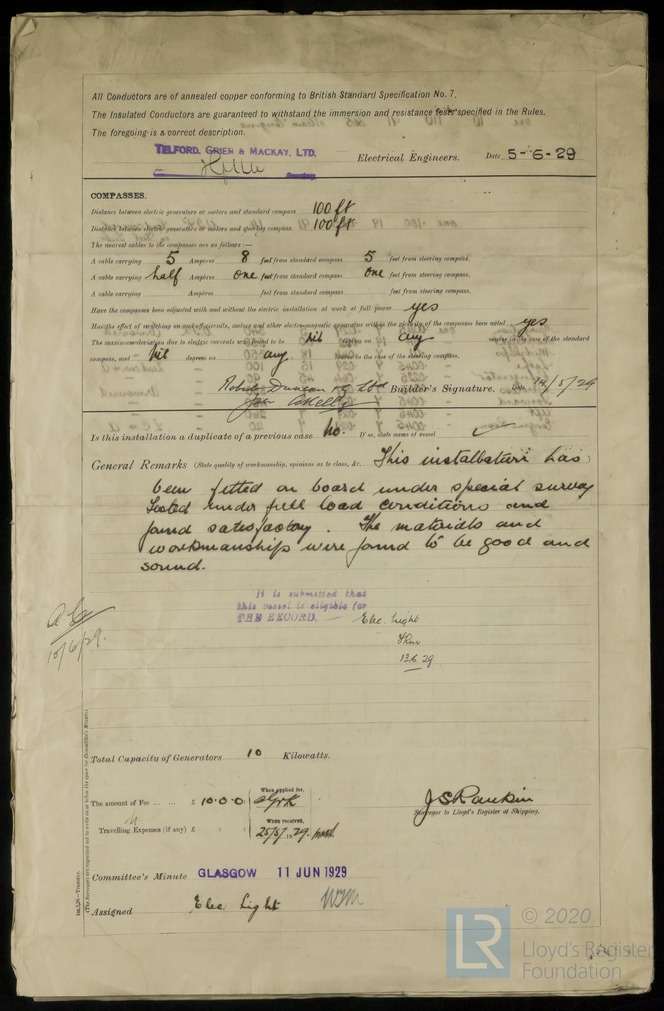 All Conductors are of annealed copper conforming to British Standard Specification No. 7.
The Insulated Conductors are guaranteed to withstand the immersion and resistance tests specified in the Rules.
The foregoing is a correct description.
TELFORD, GRIER & MACKAY, LTD.
Electrical Engineers. Date 5-6-29
COMPASSES.
Distance between electric generators or motors and standard compass 100 ft
Distance between electric generators or motors and steering compass 100 ft
The nearest cables to the compasses are as follows:—
A cable carrying 5 Ampères 8 feet from standard compass 5 feet from steering compass.
A cable carrying half Ampères one feet from standard compass one feet from steering compass.
A cable carrying Ampères feet from standard compass feet from steering compass.
Have the compasses been adjusted with and without the electric installation at work at full power yes
Has the effect of switching on and off circuits, motors and other electro-magnetic apparatus within the vicinity of the compasses been noted yes
The maximum deviation due to electric currents was found to be nil degrees on any course in the case of the standard
compass, and nil degrees on any course in the case of the steering compass.
Robert Duncan & Co Ltd Builder's Signature. Date 14/5/29
Is this installation a duplicate of a previous case No. If so, state name of vessel
General Remarks (State quality of workmanship, opinions as to class, &c. This installation has
been fitted on board under special survey
Tested under full load conditions and
found satisfactory. The materials and
workmanship were found to be good and
sound.
It is submitted that
this vessel is eligible for
THE RECORD. Elec. Light
13.6.29
10/6/29.
Total Capacity of Generators 10 Kilowatts.
The amount of Fee ... ... £ 10:0:0
When applied for,
Travelling Expenses (if any) £ : :
When received,
25/5/1929
J S Rankin
Surveyor to Lloyd's Register of Shipping.
Committee's Minute GLASGOW 11 JUN 1929
Assigned Elec. Light
LR © 2020
Lloyd's Register
Foundation